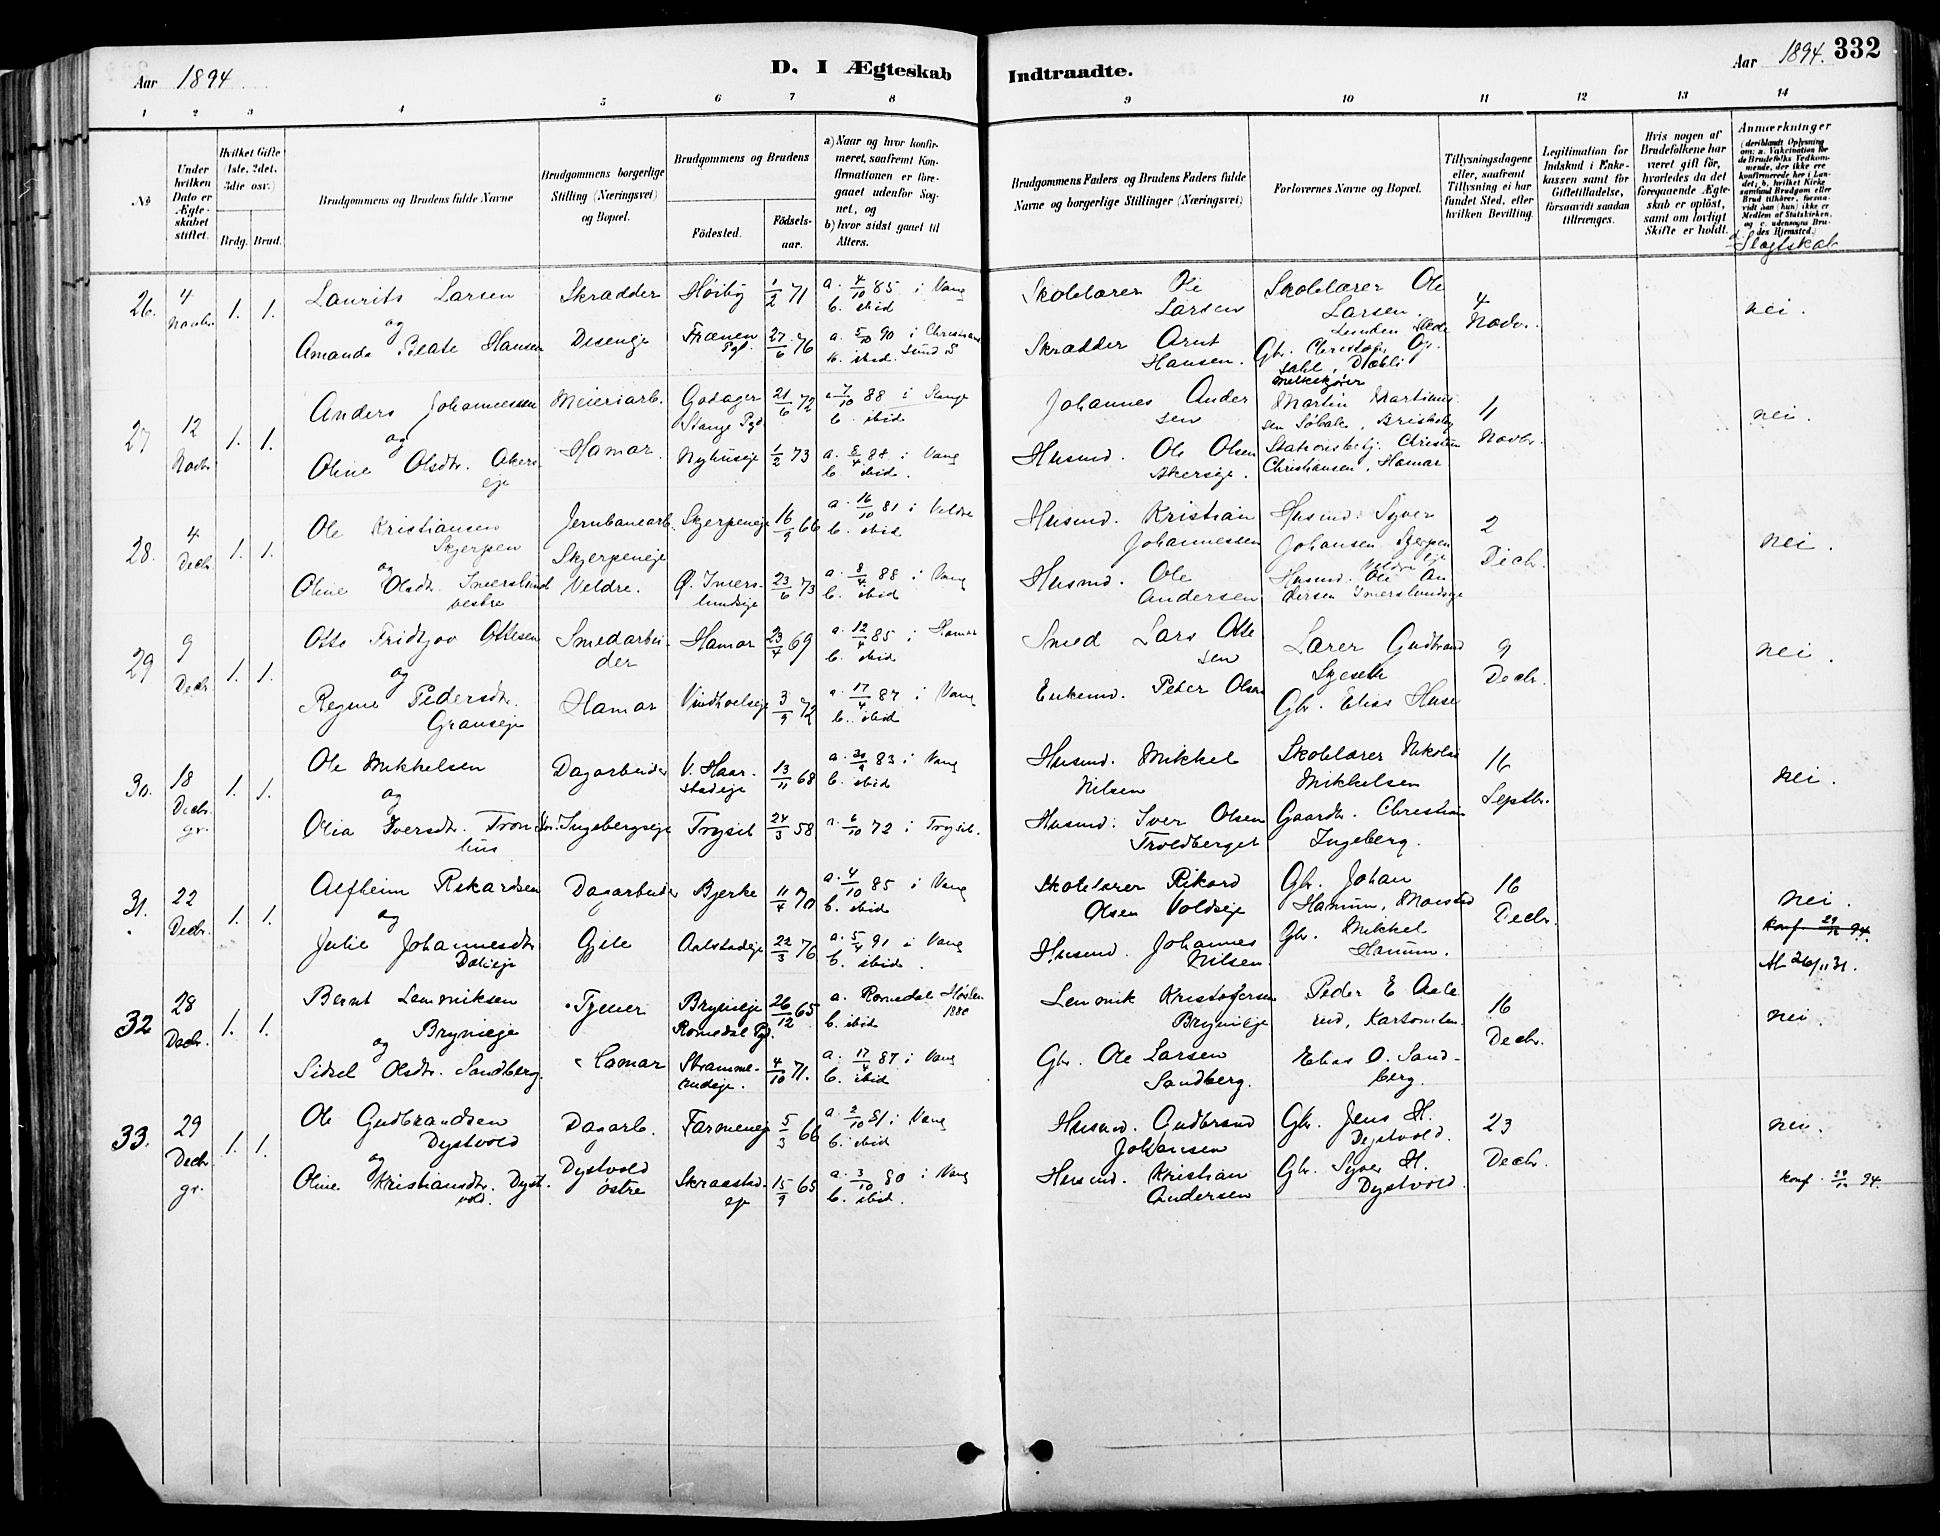 Aar 1894
D. I Ægteskab Indtraadte.
Aar 1894. 332
1 2 3 4 5 6 7 8 9 10 11 12 13 14
No
Under hvilken Dato er Ægteskabet stiftet.
Hvilket Gifte (1ste, 2det, 3die osv.)
Brdg. Brud.
Brudgommens og Brudens fulde Navne
Brudgommens borgerlige Stilling (Næringsvei) og Bopæl.
Brudgommens og Brudens
Födested.
Födsels-aar.
a) Naar og hvor konfirmeret, saafremt Konfirmationen er foregaaet udenfor Sognet, og
b) hvor sidst gaaet til Alters.
Brudgommens Faders og Brudens Faders fulde Navne og borgerlige Stillinger (Næringsvei)
Forlovernes Navne og Bopæl.
Tillysningsdagene eller, saafremt Tillysning ei har fundet Sted, efter hvilken Bevilling.
Legitimation for Indskud i Enkekassen samt for Giftetilladelse, forsaavidt saadan tiltrænges.
Hvis nogen af Brudefolkene har været gift för, hvorledes da det foregaaende Ægteskab er oplöst, samt om lovligt Skifte er holdt.
Anmærkninger
(deriblandt Oplysning om: a. Vakcination for de Brudefolks Vedkommende, der ikke ere konfirmerede her i Landet; b. hvilket Kirkesamfund Brudgom eller Brud tilhörer, forsaavidt han (hun) ikke er Medlem af Statskirken, og c. udensogns Brudes Hjemsted.)
d. Slægtskab
26. 4 Novbr. 1. 1.
Laurits Larsen
og
Amanda Beate Hansen
Skrædder
Diseneje
Høiby 1/2 71
Frænen Pgl. 27/6 76
a. 4/10 85 i Vang
b. ibid
a. 5/10 90 i Christiansund S
b. ibid.
Skolelærer Ole Larsen
Skrædder Arnt Hansen.
Skolelærer Ole Larsen.
4 Novbr.
nei.
27 12 Novbr 1. 1.
Anders Johannessen
og
Oline Olsdtr. Akerseje
Meieriarb.
Hamar.
Godager Stange Pgd. 21/6 72
Nyhuseje 1/2 73
a. 7/10 88 i Stange
b. ibid.
a. 8/4 88 i Vang
b. ibid.
Johannes Andersen
Husmd. Ole Olsen Akerseje.
Melkekjører Martin Martinussen
Stationsbetj. Christian Christiansen, Hamar
11 Novbr.
nei.
28. 4 Decbr 1. 1.
Ole Kristiansen Skjerpen
og
Oline Olsdtr. Imerslund vestre
Jernbanearb.
Skjerpeneje
Veldre.
Skjerpeneje 16/9 66
Ø. Imerslundseje 23/6 73
a. 16/10 81 i Veldre
b. ibid
a. 8/4 88 i Vang
b. ibid
Husmd. Kristian Johannessen
Husmd. Ole Andersen
Husmd. Syver Johansen Skjerpeneje Veldre
Husmd. Ole Andersen Imerslundseje
2 Decbr.
nei.
29 9 Decbr 1. 1.
Otto Fridtjov Ottesen
og
Regine Pedersdtr. Granseje
Smedarbeider
Hamar
Hamar 23/4 69
Vindholseje 3/9 72
a. 12/4 85 i Hamar
b. ibid
a. 17/4 87 i Vang
b. ibid
Smed Lars Ottesen
Enkemd. Peter Olsen
Lærer Gudbrand Lyseth
Gbr. Elias Huse
9 Decbr.
nei.
30. 18 Decbr. gr. 1. 1.
Ole Mikkelsen
og
Olia Iversdtr. Tronhus
Dagarbeider
Ingebergseje
V. Haarstadeje 13/11 68
Trysil 24/3 58
a. 30/9 83 i Vang
b. ibid
a. 6/10 72 i Trysil.
Husmd. Mikkel Nilsen
Husmd. Iver Olsen Troldberget
Skolelærer Nikolai Mikkelsen
Gaardbr. Christian Ingeberg.
16 Septbr.
nei.
31. 22 Decbr. 1. 1.
Alfheim Rikardsen
og
Julie Johannesdtr Dælieje
Dagarbeider
Gjile
Bjerke 11/4 70
Aalstadeje 22/3 76
a. 4/10 85 i Vang
b. ibid.
a. 5/4 91 i Vang
b. ibid.
Skolelærer Rikard Olsen Voldseje
Husmd. Johannes Nilsen
Gbr. Johan Hanum, Morsted
Gbr. Mikkel Hanum.
16 Decbr.
nei.
konf. 29/12 94.
At 26/11 31.
32 28 Decbr. 1. 1.
Bernt Lemmiksen Brynieje
og
Sidsel Olsdtr. Sandberg.
Tjener
Hamar
Brynieje Romedal Pgd. 26/12 65
Strammerudeje. 4/10 71.
a. Romedal Høsten 1880
b. ibid
a. 17/4 87 i Vang
b. ibid
Lemmik Kristoffersen Brynieje
Gbr. Ole Larsen Sandberg.
Peder E Aalerud, Kartomten.
Elias O. Sandberg.
16 Decbr.
nei.
33. 29 Decbr gr. 1. 1.
Ole Gudbrandsen Dystvold
og
Oline Kristiansdtr. Dystvold.
Dagarb.
Dystvold østre
Farmeneje 5/3 66
Skraastadeje 15/9 65
a. 2/10 81 i Vang
b. ibid
a. 3/10 80 i Vang
b. ibid.
Husmd. Gudbrand Johansen
Husmd. Kristian Andersen
Gbr. Jens H. Dystvold.
Gbr. Syver H. Dystvold.
23 Decbr.
nei.
konf. 29/12 94